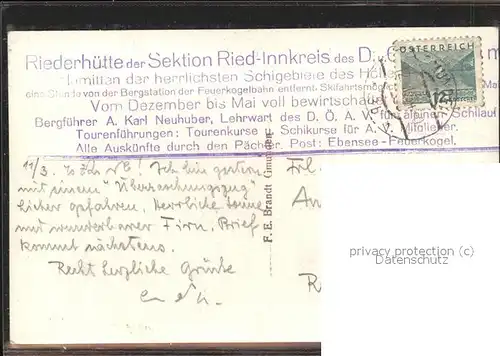 Riederhütte der Sektion Ried-Innkreis des D.
inmitten der herrlichsten Schigebiete des Höl
eine Stunde von der Bergstation der Feuerkogelbahn entfernt. Skifahrtsmögl Mai
Vom Dezember bis Mai voll bewirtschaf
Bergführer A. Karl Neuhuber, Lehrwart des D. Ö. A. V. für alpinen Schilauf
Tourenführungen: Tourenkurse u. Schikurse für A. V. Mitglieder.
Alle Auskünfte durch den Pächter. Post: Ebensee-Feuerkogel.
ÖSTERREICH
12
11/3. Ich bin gestern
mit einem "Überraschungszug"
hierher gefahren. Herrliche Sonne
mit wunderbarer Firn. Brief
kommt nächstens.
Recht herzliche Grüsse
F. E. Brandt Gmunden
Frl.
An
R
privacy protection (c)
Datenschutz